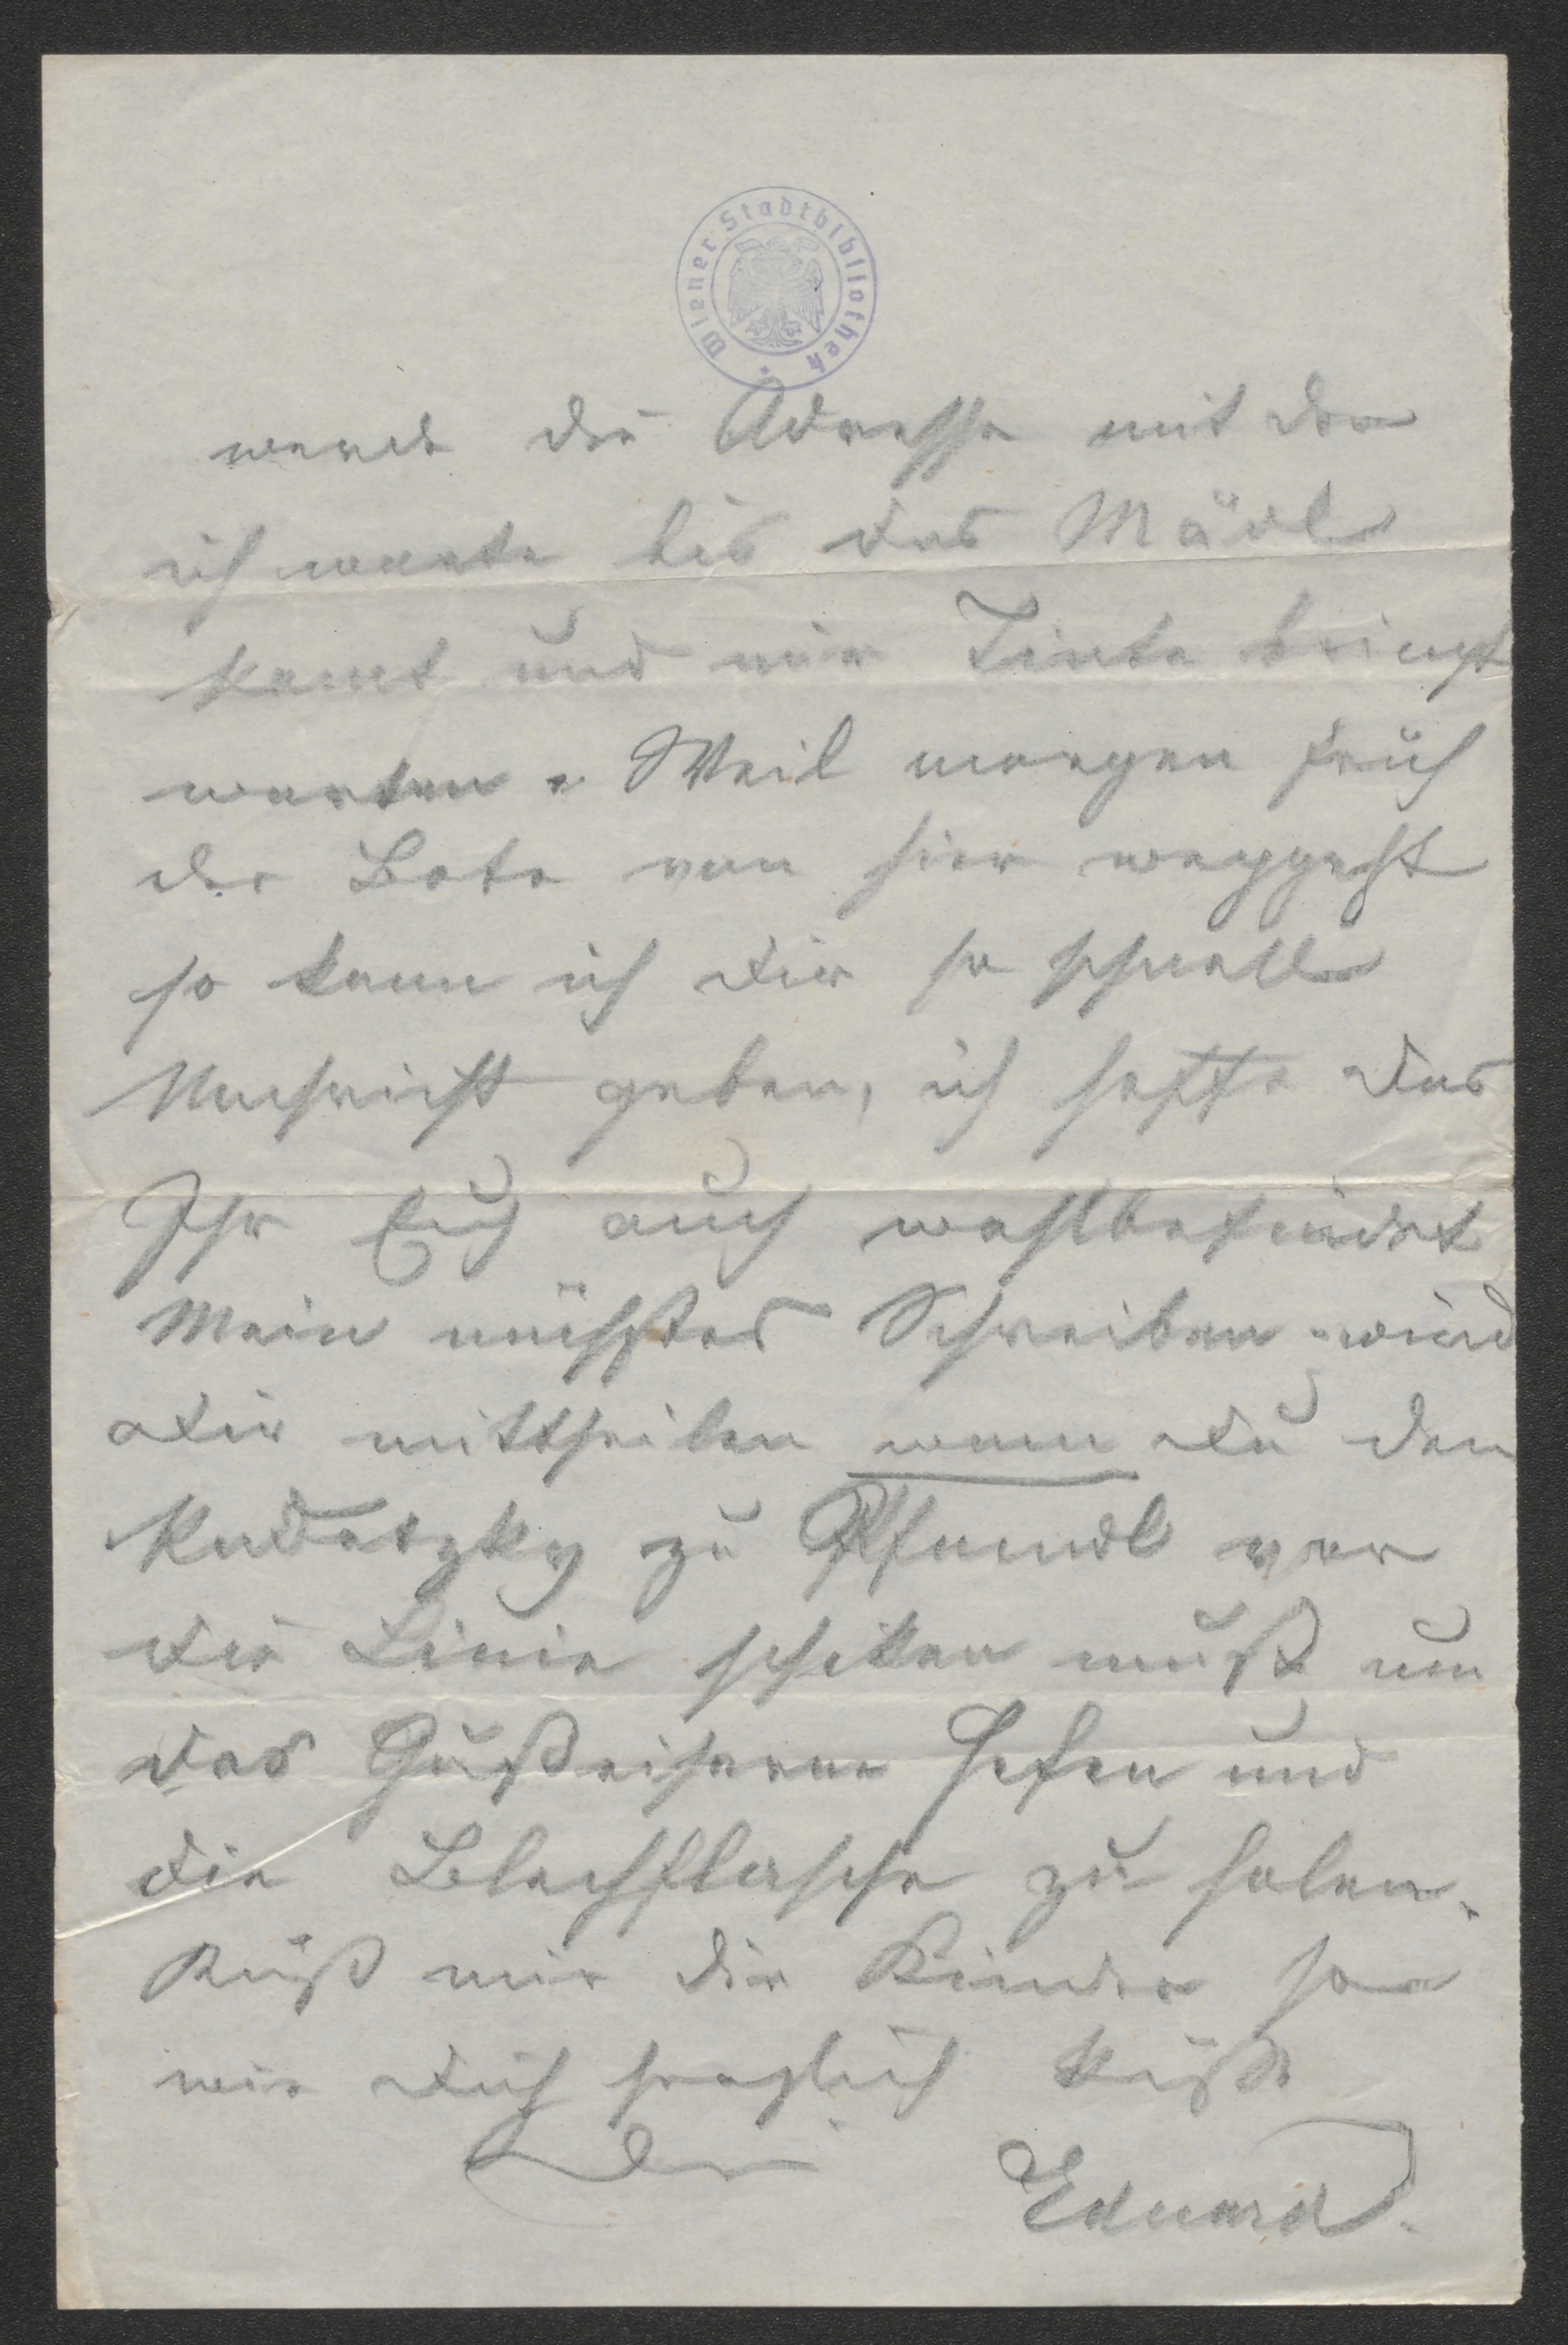 Wiener Stadtbibliothek
werde die Adresse mit der
ich warte bis das Mädl
komt und mir Tinte bringt
warten. Weil morgen früh
der Bote von hier weggeht
so kann ich dir so schnell
Nachricht geben, ich hoffe das
Ihr Euch auch wohlbefindet
Mein nächstes Schreiben wird
dir mittheilen wann du den
zu Pfandl vor
die Linie schiken mußt um
das Gußeiserne Hefen und
die Blechflasche zu holen.
Küß mir die Kinder so
wie dich herzlich küßt
dein Eduard.